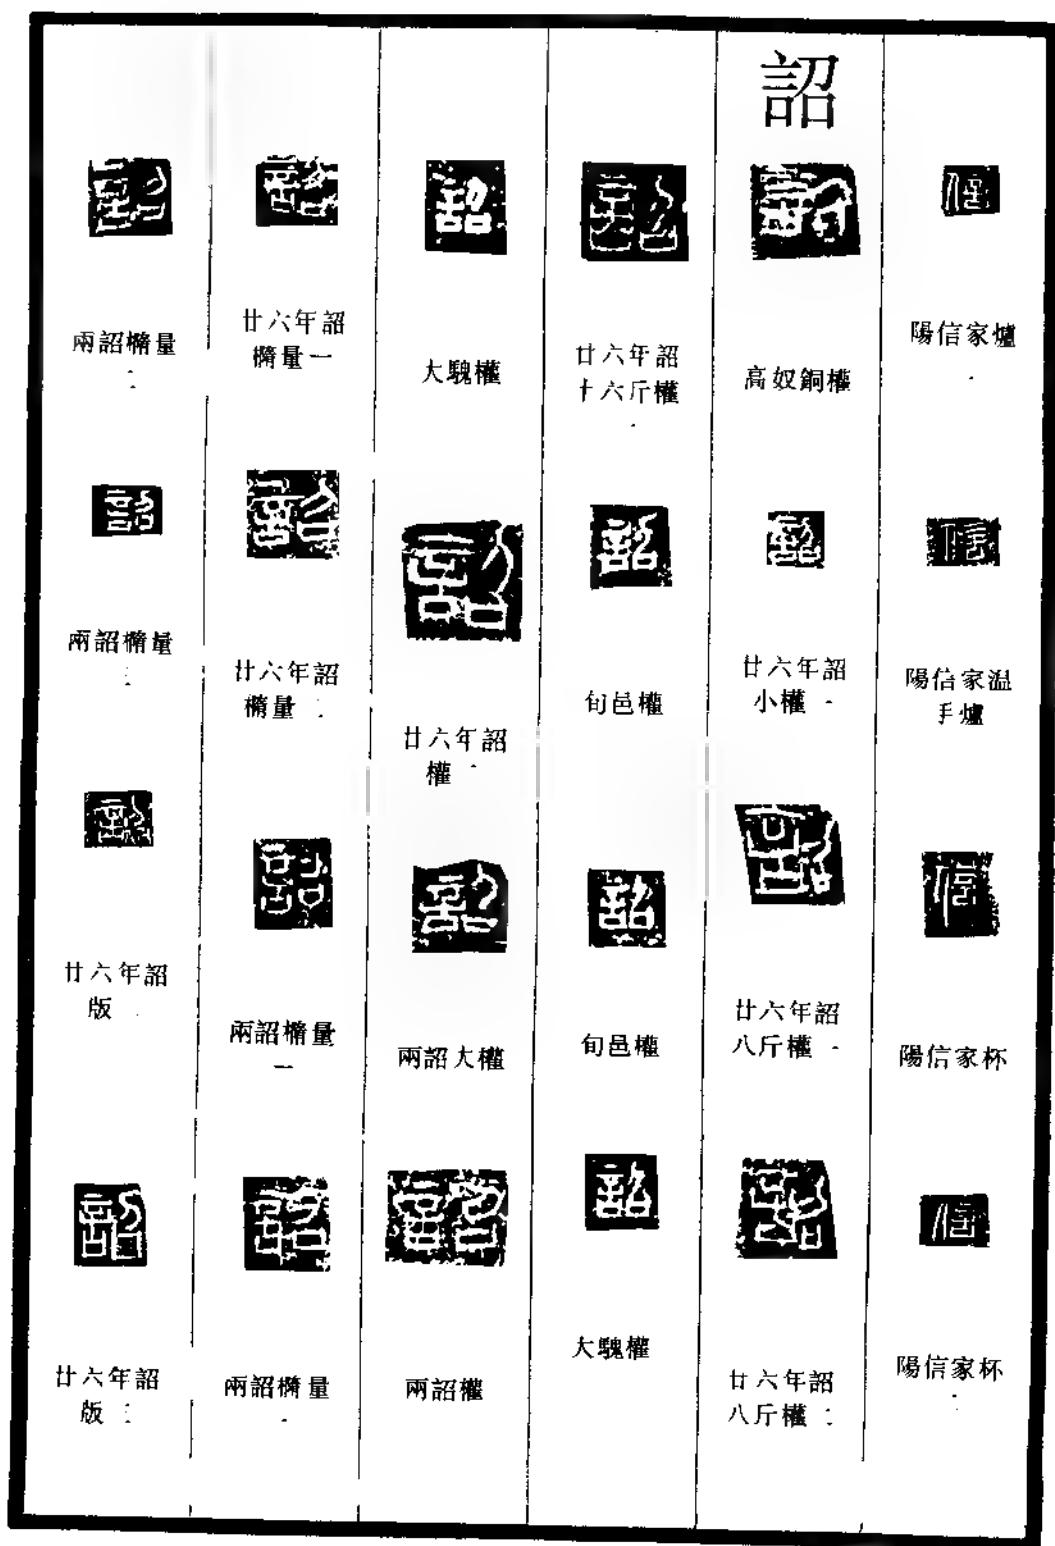 陽信家爐
陽信家温
手爐
陽信家杯
陽信家杯
詔
高奴銅權
廿六年詔
小權
廿六年詔
八斤權
廿六年詔
八斤權二
廿六年詔
十六斤權
旬邑權
旬邑權
大騩權
大騩權
廿六年詔
權
兩詔大權
兩詔權
廿六年詔
橢量一
廿六年詔
橢量
兩詔橢量
一
兩詔橢量
兩詔橢量
兩詔橢量
廿六年詔
版
廿六年詔
版